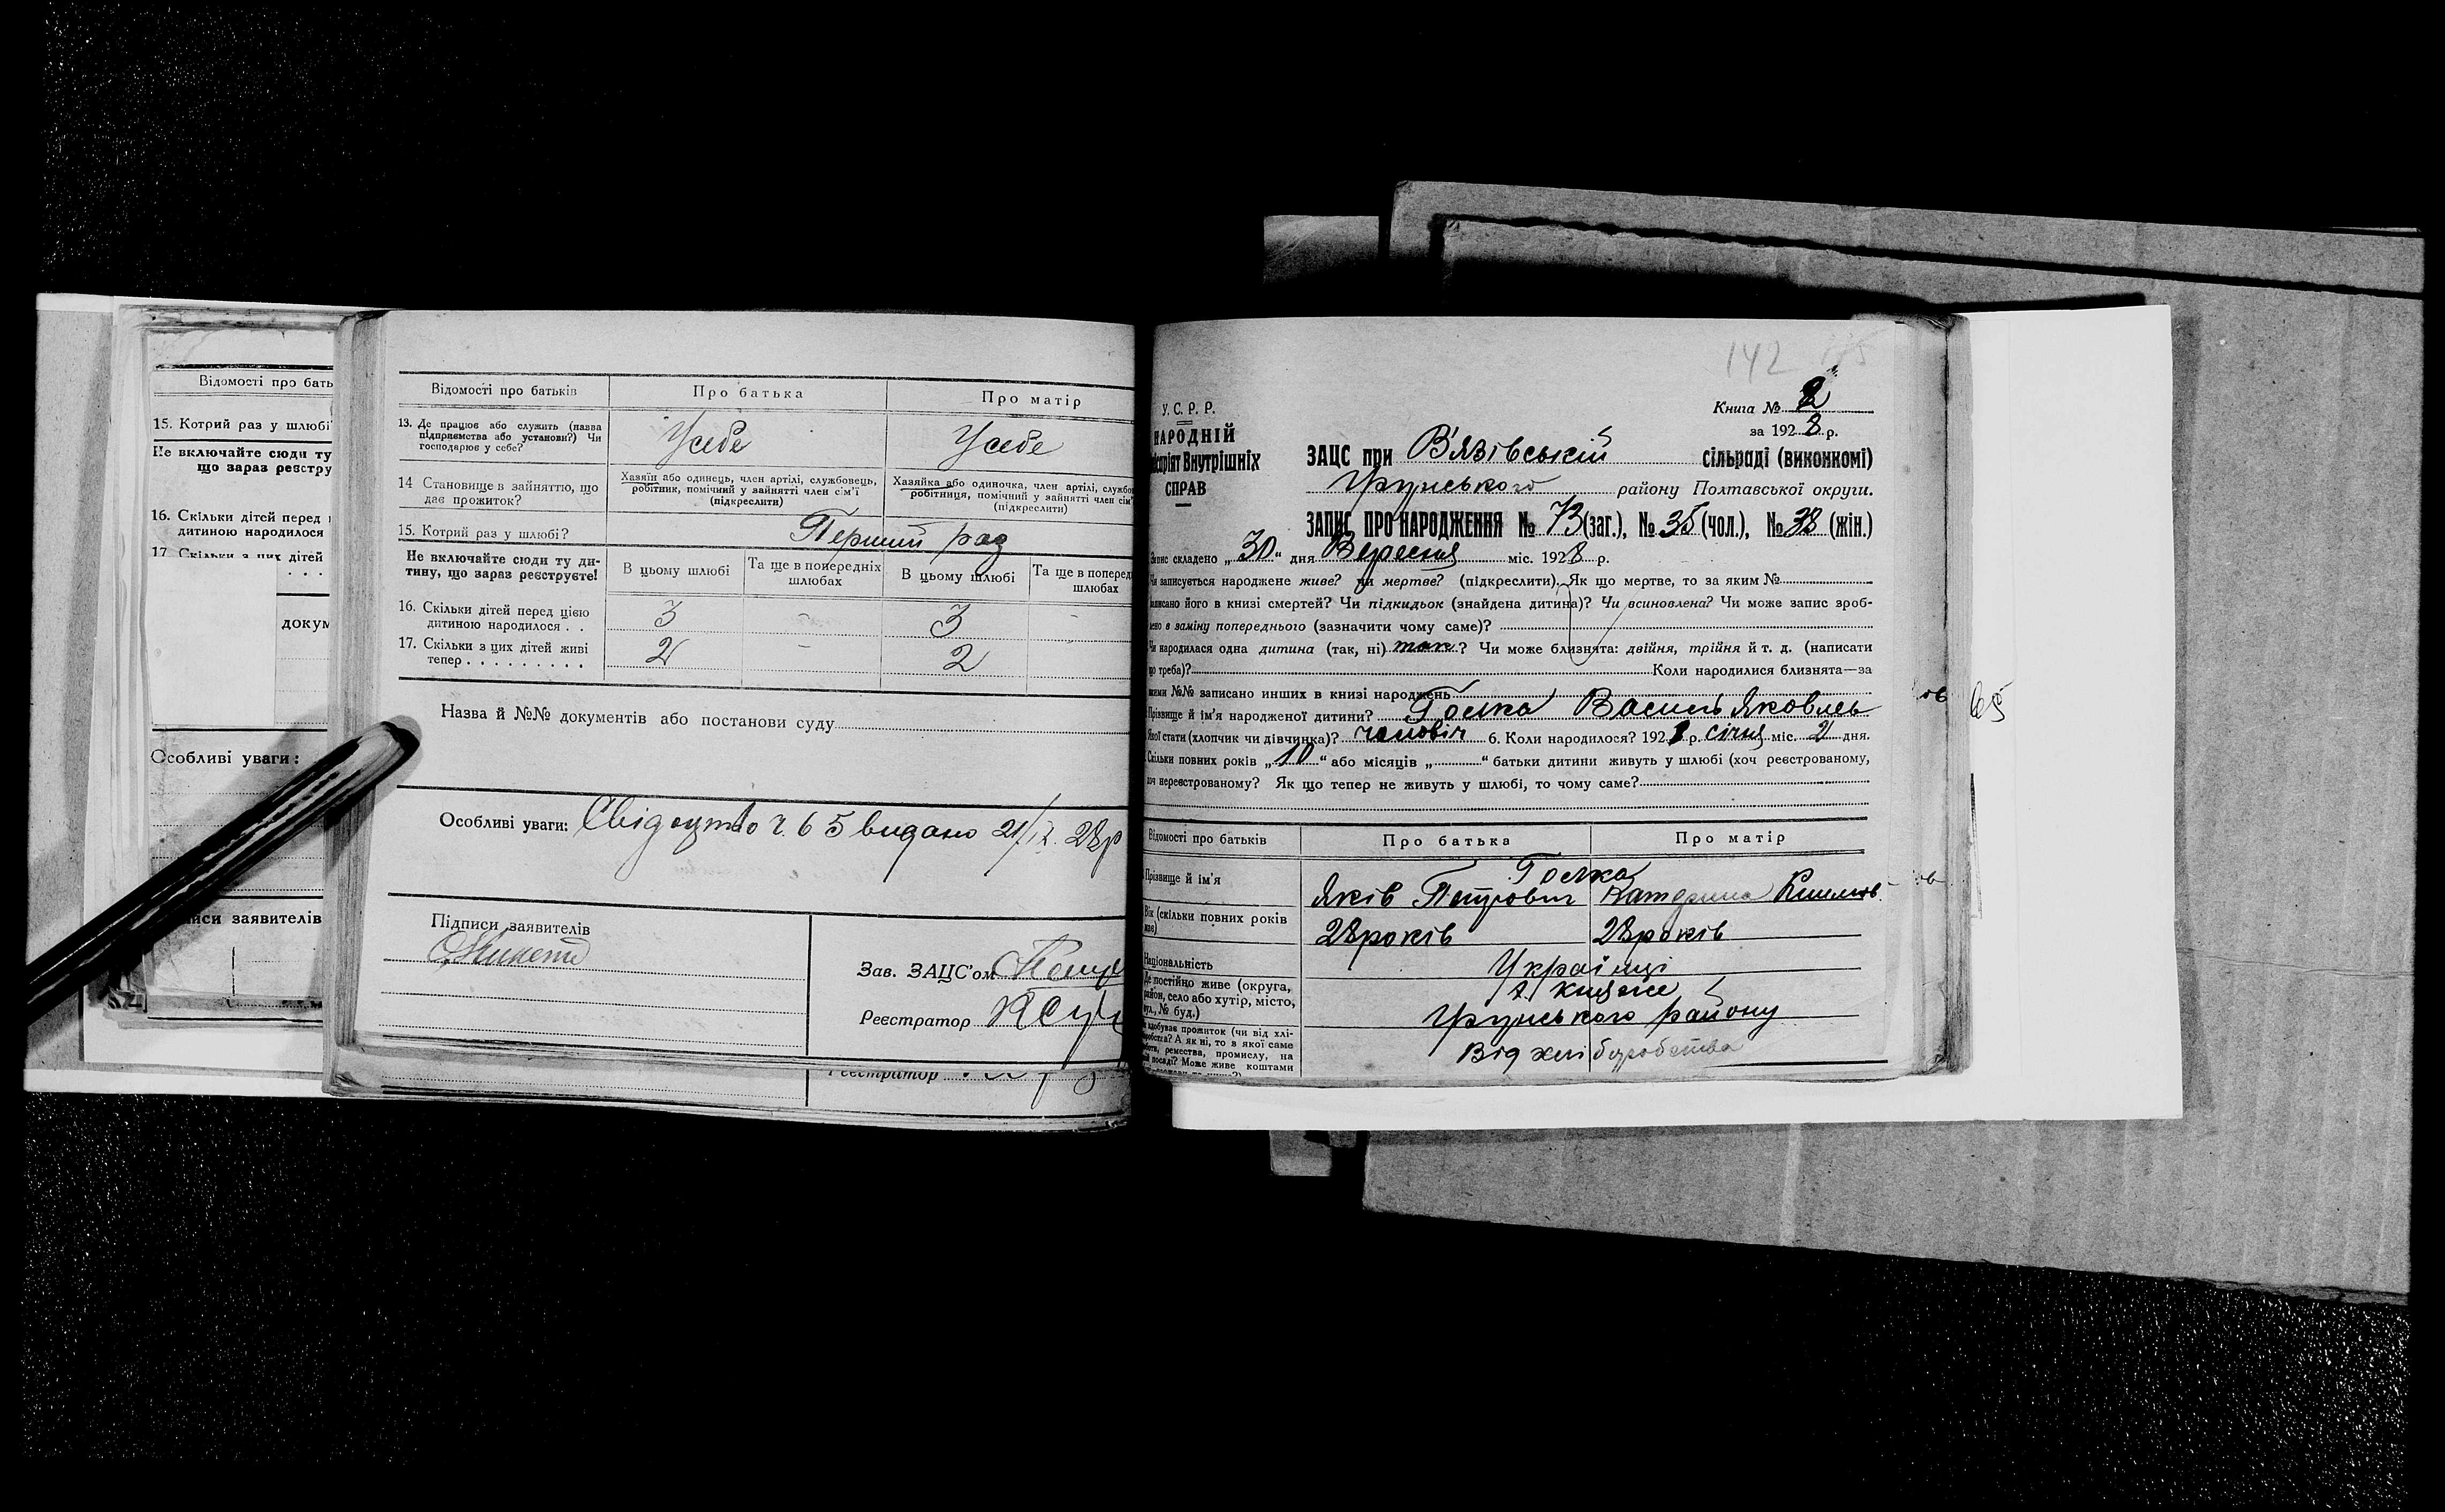 Відомості про бать
15. Котрий раз у шлюбі
Не включайте сюди ту
що зараз реєстру
16. Скільки дітей перед
дитиною народилося
17. Скільки з цих дітей
. . .
докум
Особливі уваги:
иси заявителів
Відомості про батьків Про батька Про матір
13. Де працює або служить (назва
підприємства або установи?) Чи
господарює у себе?
Усебе Усебе
14 Становище в зайняттю, що
дає прожиток?
Хазяїн або одинець, член артілі, службовець,
робітник, помічний у зайнятті член сім'ї
(підкреслити)
Хазяйка або одиночка, член артілі, службо
робітниця, помічний у зайнятті член сім'
(підкреслити)
15. Котрий раз у шлюбі? Перший раз
Не включайте сюди ту ди-
тину, що зараз реєструєте!
В цьому шлюбі Та ще в попередніх
шлюбах
В цьому шлюбі Та ще в поперед
шлюбах
16. Скільки дітей перед цією
дитиною народилося . . 3 - 3 -
17. Скільки з цих дітей живі
тепер . . . . . . . . . 2 - 2
Назва й №№ документів або постанови суду
Особливі уваги: Свідоцтво ч. 65 видано 21/IX. 28р
Підписи заявителів
Зав. ЗАЦС'ом
Реєстратор
Реєстратор
142
У. С. Р. Р.
НАРОДНІЙ
Внутрішніх
СПРАВ
Книга № 2
за 1928 р.
ЗАЦС при В'язівській сільраді (виконкомі)
Грунського району Полтавської округи.
ЗАПИС ПРО НАРОДЖЕННЯ № 73 (заг.), № 35 (чол.), № 38 (жін.)
Запис складено „30“ дня Вересня міс. 1928 р.
Чи записується народжене живе? чи мертве? (підкреслити). Як що мертве, то за яким №
записано його в книзі смертей? Чи підкидьок (знайдена дитина)? Чи всиновлена? Чи може запис зроб-
лено в заміну попереднього (зазначити чому саме)?
Чи народилася одна дитина (так, ні) так? Чи може близнята: двійня, трійня й т. д. (написати
що треба)? Коли народилися близнята—за
якими №№ записано инших в книзі народжень
Прізвище й ім'я народженої дитини? Голка Василь Яковлев
Якої стати (хлопчик чи дівчинка)? чоловіч 6. Коли народилося? 192 р. січня міс. 2 дня.
Скільки повних років „10“ або місяців „ “ батьки дитини живуть у шлюбі (хоч реєстрованому,
хоч нереєстрованому? Як що тепер не живуть у шлюбі, то чому саме?
Відомості про батьків Про батька Про матір
Прізвище й ім'я
Голка
Яків Петрович Катерина
Вік (скільки повних років
має)
28 років 28 років
Національність Українці
Де постійно живе (округа,
район, село або хутір, місто,
вул., № буд.)
х. Княже
Грунського району
здобуває прожиток (чи від хлі-
боробства? А як ні, то в якої саме
роботи, ремества, промислу, на
посаді? Може живе коштами
Від хліборобства
65